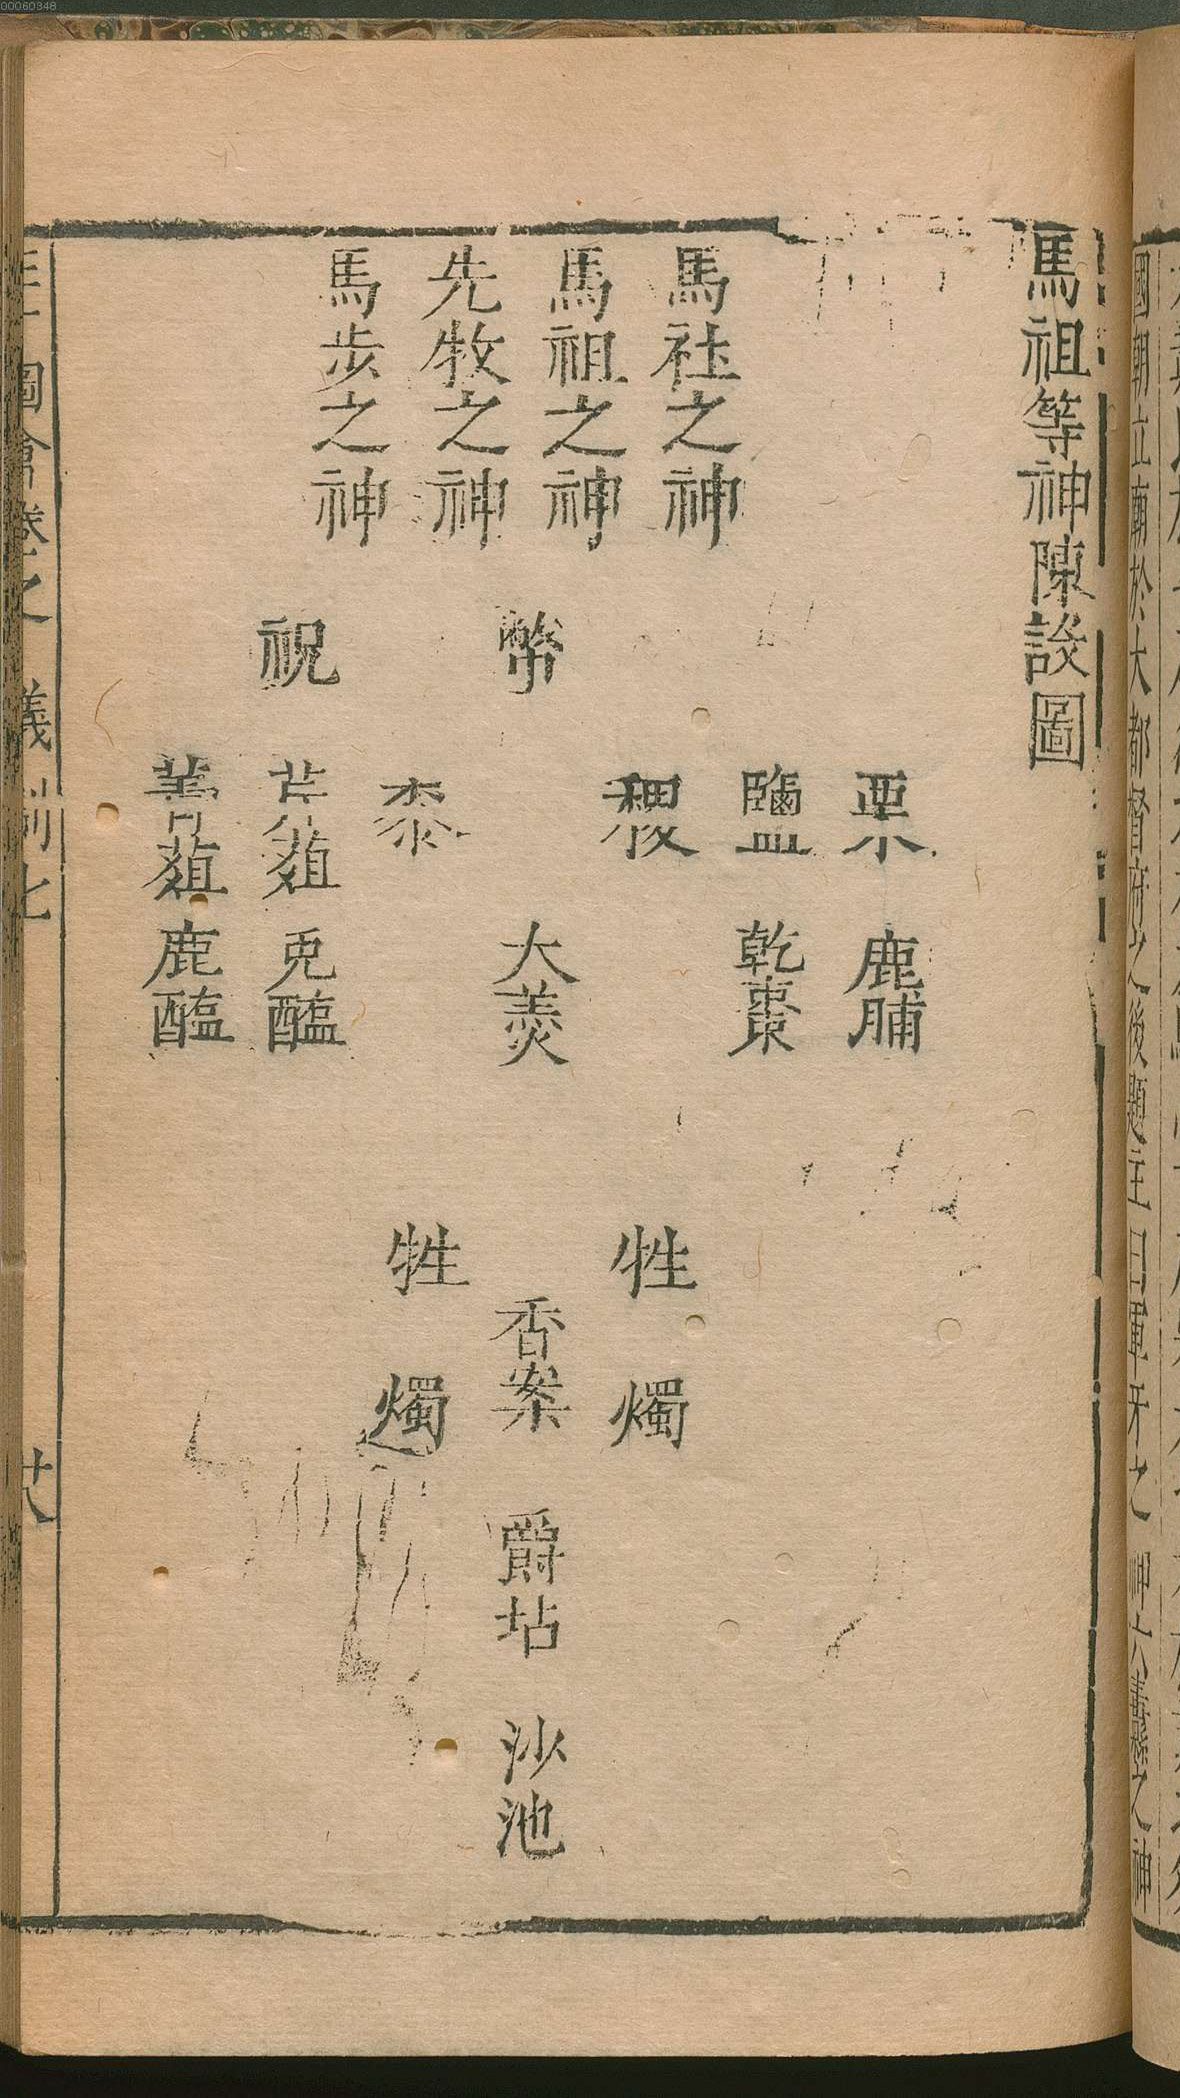 00060348
國朝立廟於大都督府之後題主曰軍牙之神六纛之神
馬祖等神陳設圖
馬社之神
馬祖之神
先牧之神
馬步之神
幣
祝
栗
鹽
稷
黍
芹菹
菁菹
鹿脯
乾棗
大羹
兎醢
鹿醢
牲
牲
香案
燭
燭
爵坫
沙池
三才圖會卷之 儀制七 廿八